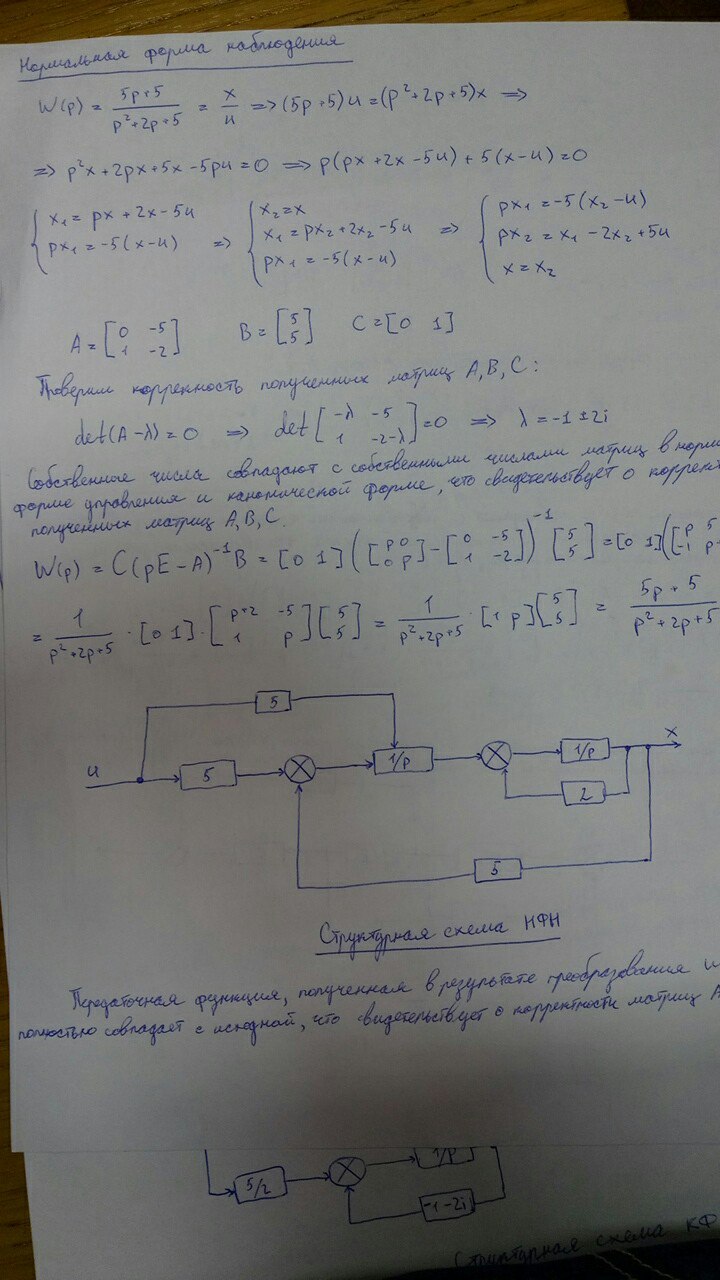 Нормальная форма наблюдения
W(p) = \frac{5p+5}{p^2+2p+5} = \frac{x}{u} => (5p+5)u = (p^2+2p+5)x =>
=> p^2x+2px+5x-5pu=0 => p(px+2x-5u)+5(x-u)=0
{ x_1 = px+2x-5u ; px_1 = -5(x-u) => { x_2 = x ; x_1 = px_2+2x_2-5u ; px_1 = -5(x-u) => { px_1 = -5(x_2-u) ; px_2 = x_1-2x_2+5u ; x = x_2
A = [0 -5; 1 -2] B = [5; 5] C = [0 1]
Проверим корректность полученных матриц A, B, C:
det(A-λ)=0 => det[-λ -5; 1 -2-λ]=0 => λ = -1 ± 2i
Собственные числа совпадают с собственными числами матриц в норм
форме управления и канонической форме, что свидетельствует о коррект
полученных матриц A, B, C.
W(p) = C(pE-A)^{-1}B = [0 1]([p 0; 0 p]-[0 -5; 1 -2])^{-1}[5; 5] = [0 1]([p 5; -1 p
= \frac{1}{p^2+2p+5} · [0 1] · [p+2 -5; 1 p][5; 5] = \frac{1}{p^2+2p+5} · [1 p][5; 5] = \frac{5p+5}{p^2+2p+5}
5
u 5 1/p 1/p x
2
5
Структурная схема НФН
Передаточная функция, полученная в результате преобразования
полностью совпадает с исходной, что свидетельствует о корректности матриц A
1/p
5/2
-1-2i
Структурная схема КФ